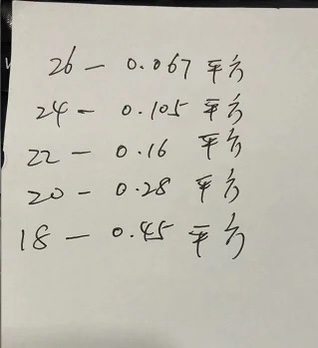 26 — 0.067 平方
24 — 0.105 平方
22 — 0.16 平方
20 — 0.28 平方
18 — 0.45 平方